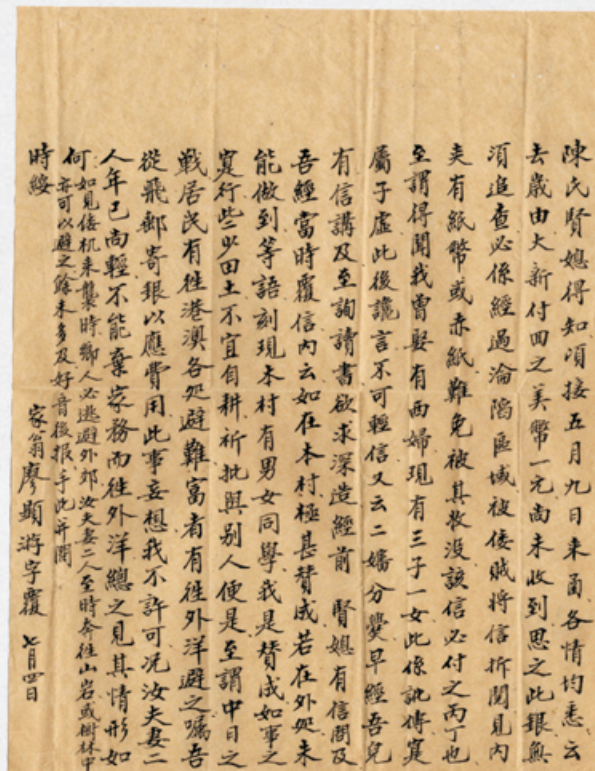 陳氏賢媳得知項接五月九日来函各情均悉云
去歲由大新付回之美幣一元尚未收到思之此銀無
須追查必係經過淪陷區域被倭賊將信拆閱見內
夾有紙幣或赤紙難免被其教没該信必付之丙丁也
至謂得聞我曾娶有西婦現有三子一女此係訛傳寔
屬子虛此後讒言不可輕信又云二嬸分㸑早經吾兒
有信講及至詢讀書欲求深造經前 賢媳有信問及
吾經當時覆信內云如在本村極甚賛成若在外処未
能做到等語刻現本村有男女同學我是賛成如事之
寔行些少田土不宜自耕祈批與别人便是至謂中日之
戦居民有徃港澳各処避難富者有徃外洋避之囑吾
從飛郵寄銀以應費用此事妄想我不許可况汝夫妻二
人年已尚輕不能棄家務而徃外洋總之見其情形如
何如見倭机来襲時鄉人必逃避外郊汝夫妻二人至時奔徃山岩或樹林中
亦可以避之餘未多及好音後报手此并問
時綏
家翁廖顯游字覆 七月四日